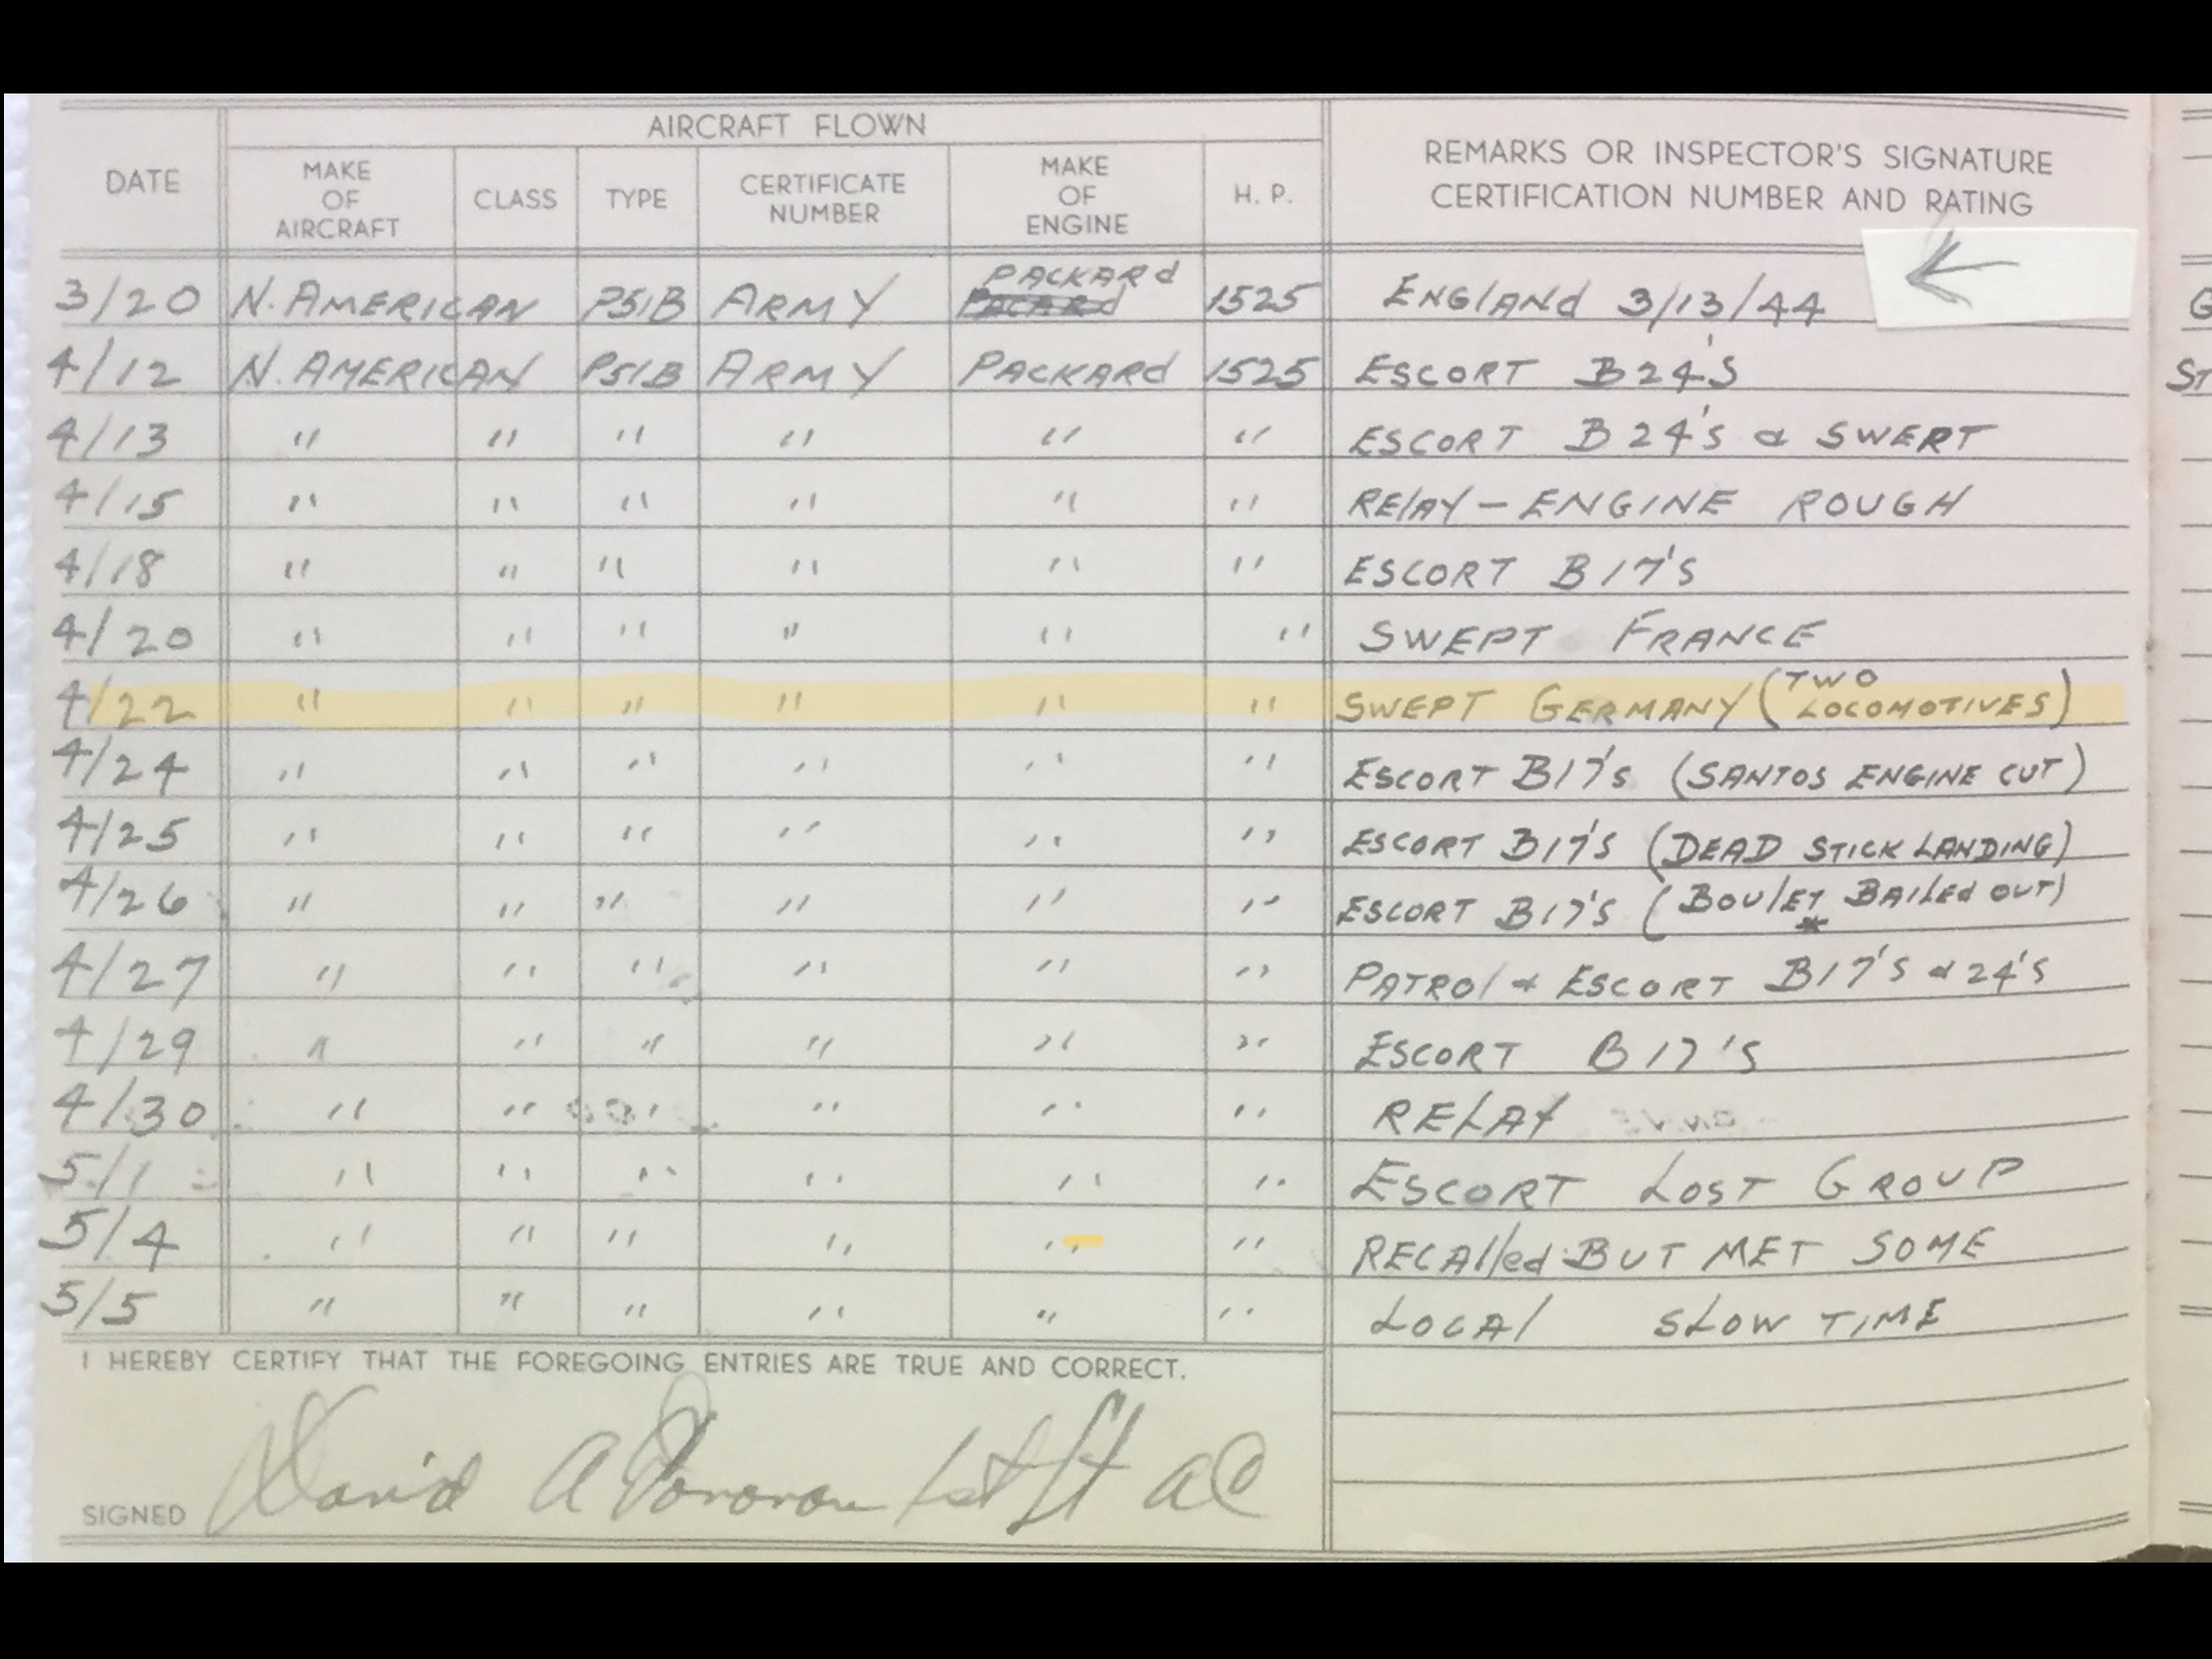 AIRCRAFT FLOWN
DATE MAKE OF AIRCRAFT CLASS TYPE CERTIFICATE NUMBER MAKE OF ENGINE H. P. REMARKS OR INSPECTOR'S SIGNATURE CERTIFICATION NUMBER AND RATING
3/20 N. AMERICAN P51B ARMY PACKARd 1525 ENGlANd 3/13/44
4/12 N. AMERICAN P51B ARMY PACKARd 1525 ESCORT B24'S
4/13 " " " " " " ESCORT B24'S & SWERT
4/15 " " " " " " RElAY - ENGINE ROUGH
4/18 " " " " " " ESCORT B17'S
4/20 " " " " " " SWEPT FRANCE
4/22 " " " " " " SWEPT GERMANY (TWO LOCOMOTIVES)
4/24 " " " " " " ESCORT B17'S (SANTOS ENGINE CUT)
4/25 " " " " " " ESCORT B17'S (DEAD STICK LANDING)
4/26 " " " " " " ESCORT B17'S (BOUlET BAILEd OUT)
*
4/27 " " " " " " PATROl & ESCORT B17'S & 24'S
4/29 " " " " " " ESCORT B17'S
4/30 " " " " " " RELAY
5/1 " " " " " " ESCORT LOST GROUP
5/4 " " " " " " RECAlled BUT MET SOME
5/5 " " " " " " LOCAl SLOW TIME
I HEREBY CERTIFY THAT THE FOREGOING ENTRIES ARE TRUE AND CORRECT.
SIGNED David A Donovan 1st Lt AC
G
ST